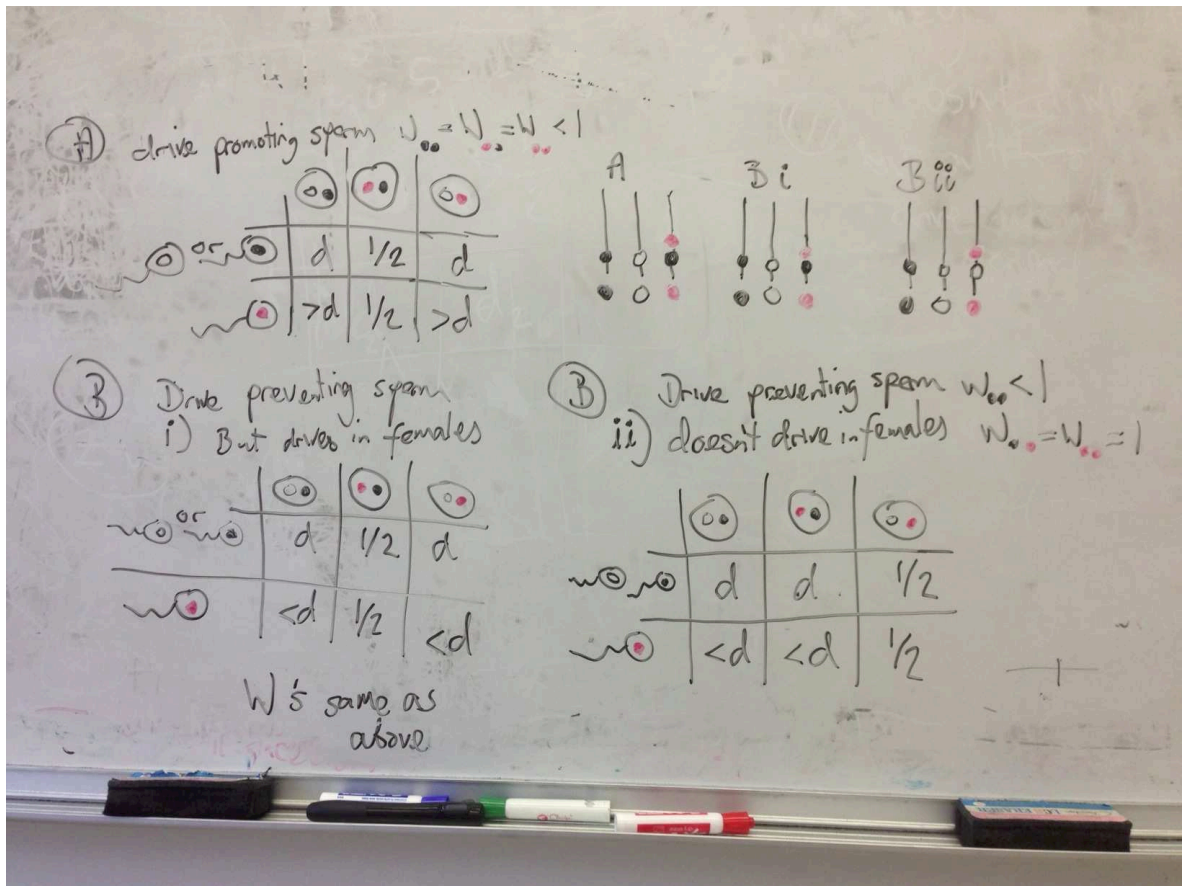 A drive promoting sperm W = W = W < 1
d 1/2 d
>d 1/2 >d
or
A B i B ii
B Drive preventing sperm
i) But drives in females
or
d 1/2 d
<d 1/2 <d
W's same as
above
B Drive preventing sperm W < 1
ii) doesn't drive in females W = W = 1
d d 1/2
<d <d 1/2